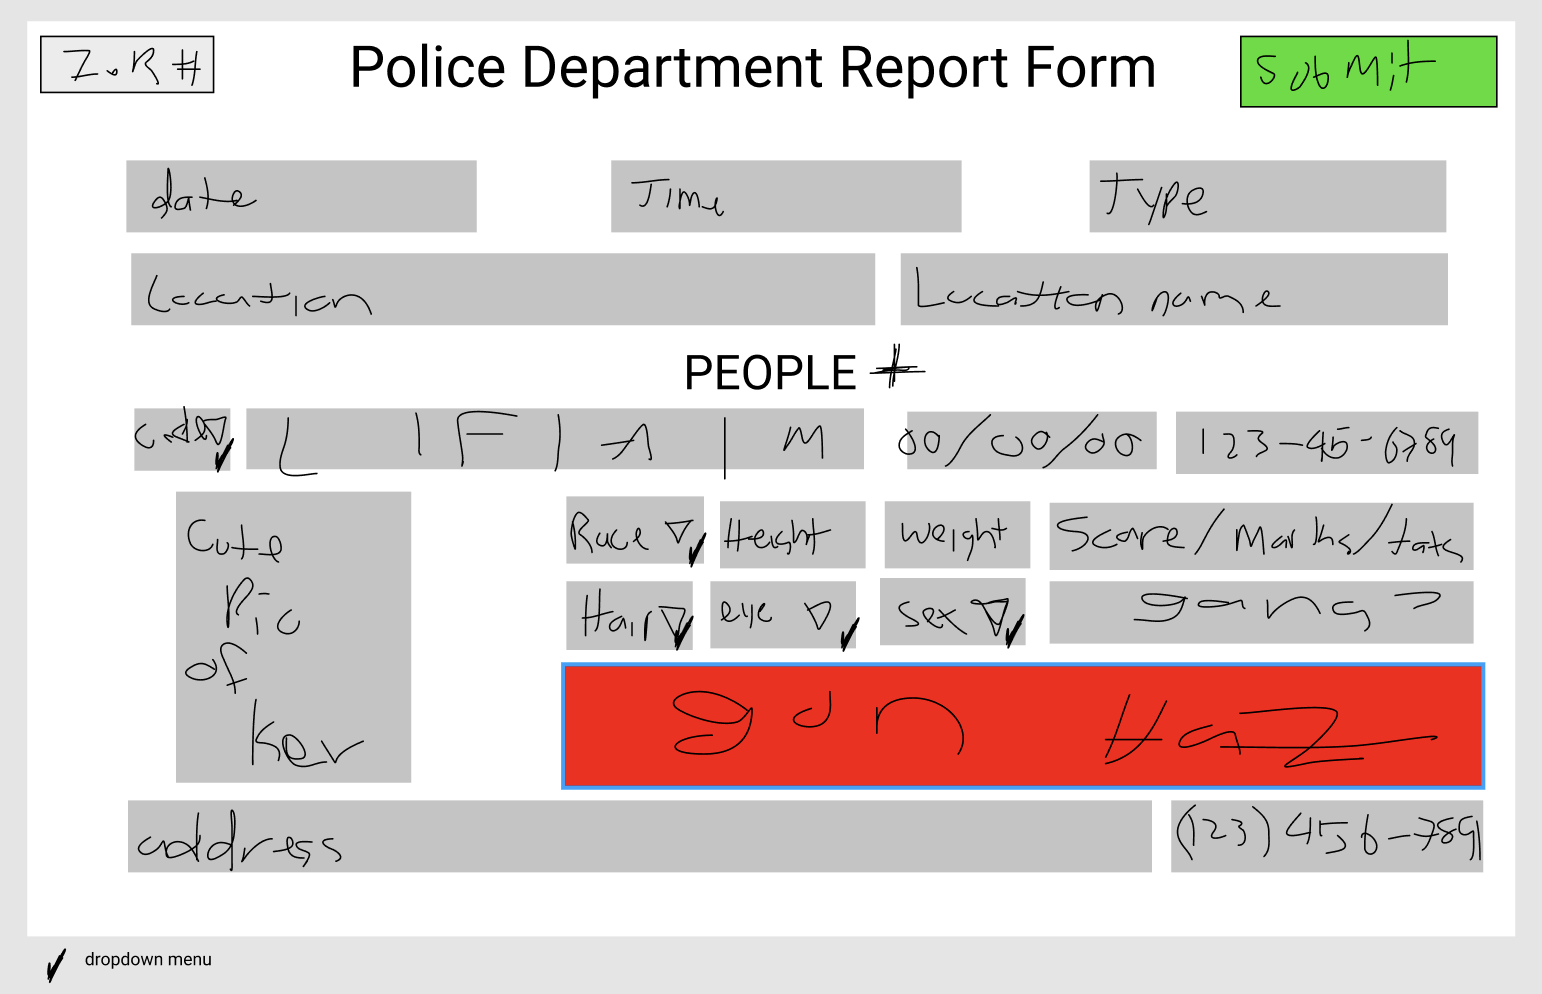 Z.R #
Police Department Report Form
Submit
date
Time
Type
Location
Location name
PEOPLE +
code
L | F | A | M
00/00/00
123-45-6789
Cute
Pic
of
Race
Height
weight
Scare/Marks/tats
Hair
eye
sex
gang?
gun Haz
address
(123) 456-7891
dropdown menu